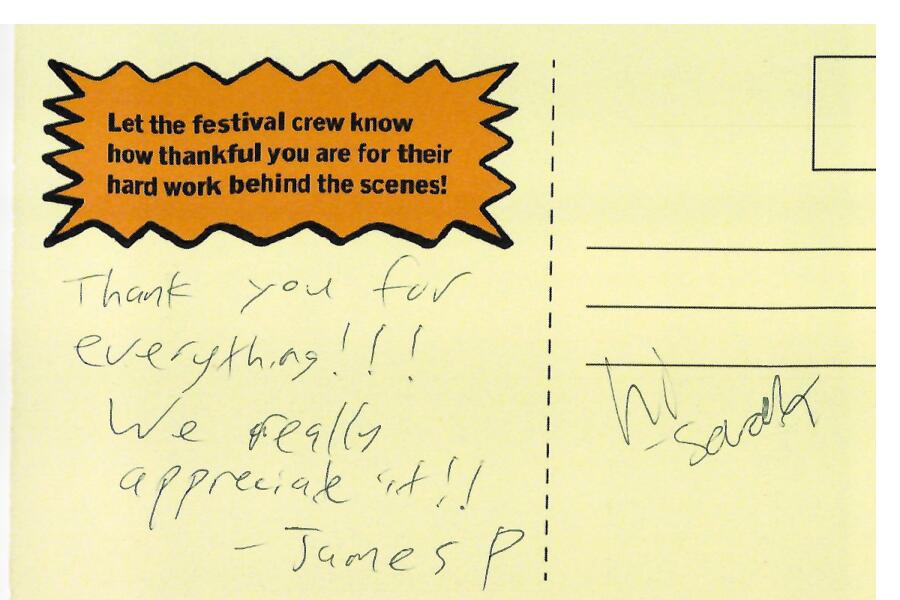 Let the festival crew know
how thankful you are for their
hard work behind the scenes!
Thank you for
everything!!!
We really
appreciate it!!
- James P
hi
- Sarah